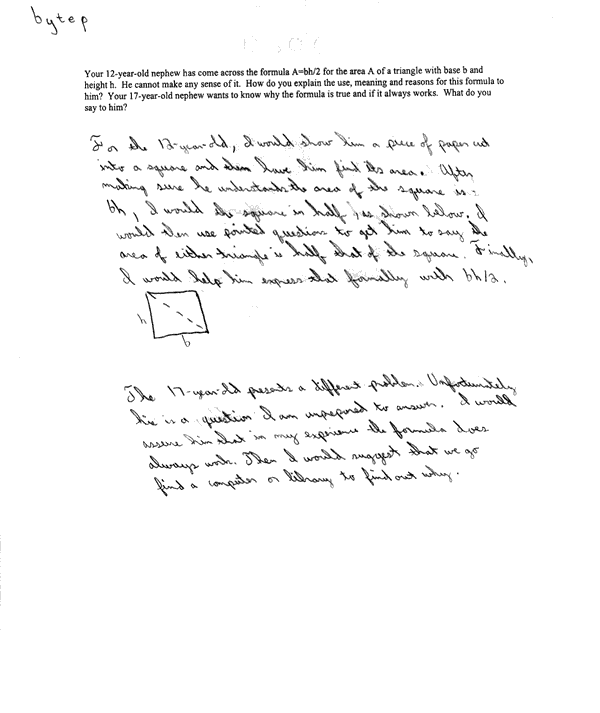 bytep
Your 12-year-old nephew has come across the formula A=bh/2 for the area A of a triangle with base b and
height h. He cannot make any sense of it. How do you explain the use, meaning and reasons for this formula to
him? Your 17-year-old nephew wants to know why the formula is true and if it always works. What do you
say to him?
For the 12-year-old, I would show him a piece of paper cut
into a square and then have him find its area. After
making sure he understands the area of the square is
bh, I would the square in half, as shown below. I
would then use pointed questions to get him to say the
area of either triangle is half that of the square. Finally,
I would help him express that formally with bh/2.
h
b
The 17-year-old presents a different problem. Unfortunately
his is a question I am unprepared to answer. I would
assure him that in my experience the formula does
always work. Then I would suggest that we go
find a computer or library to find out why.